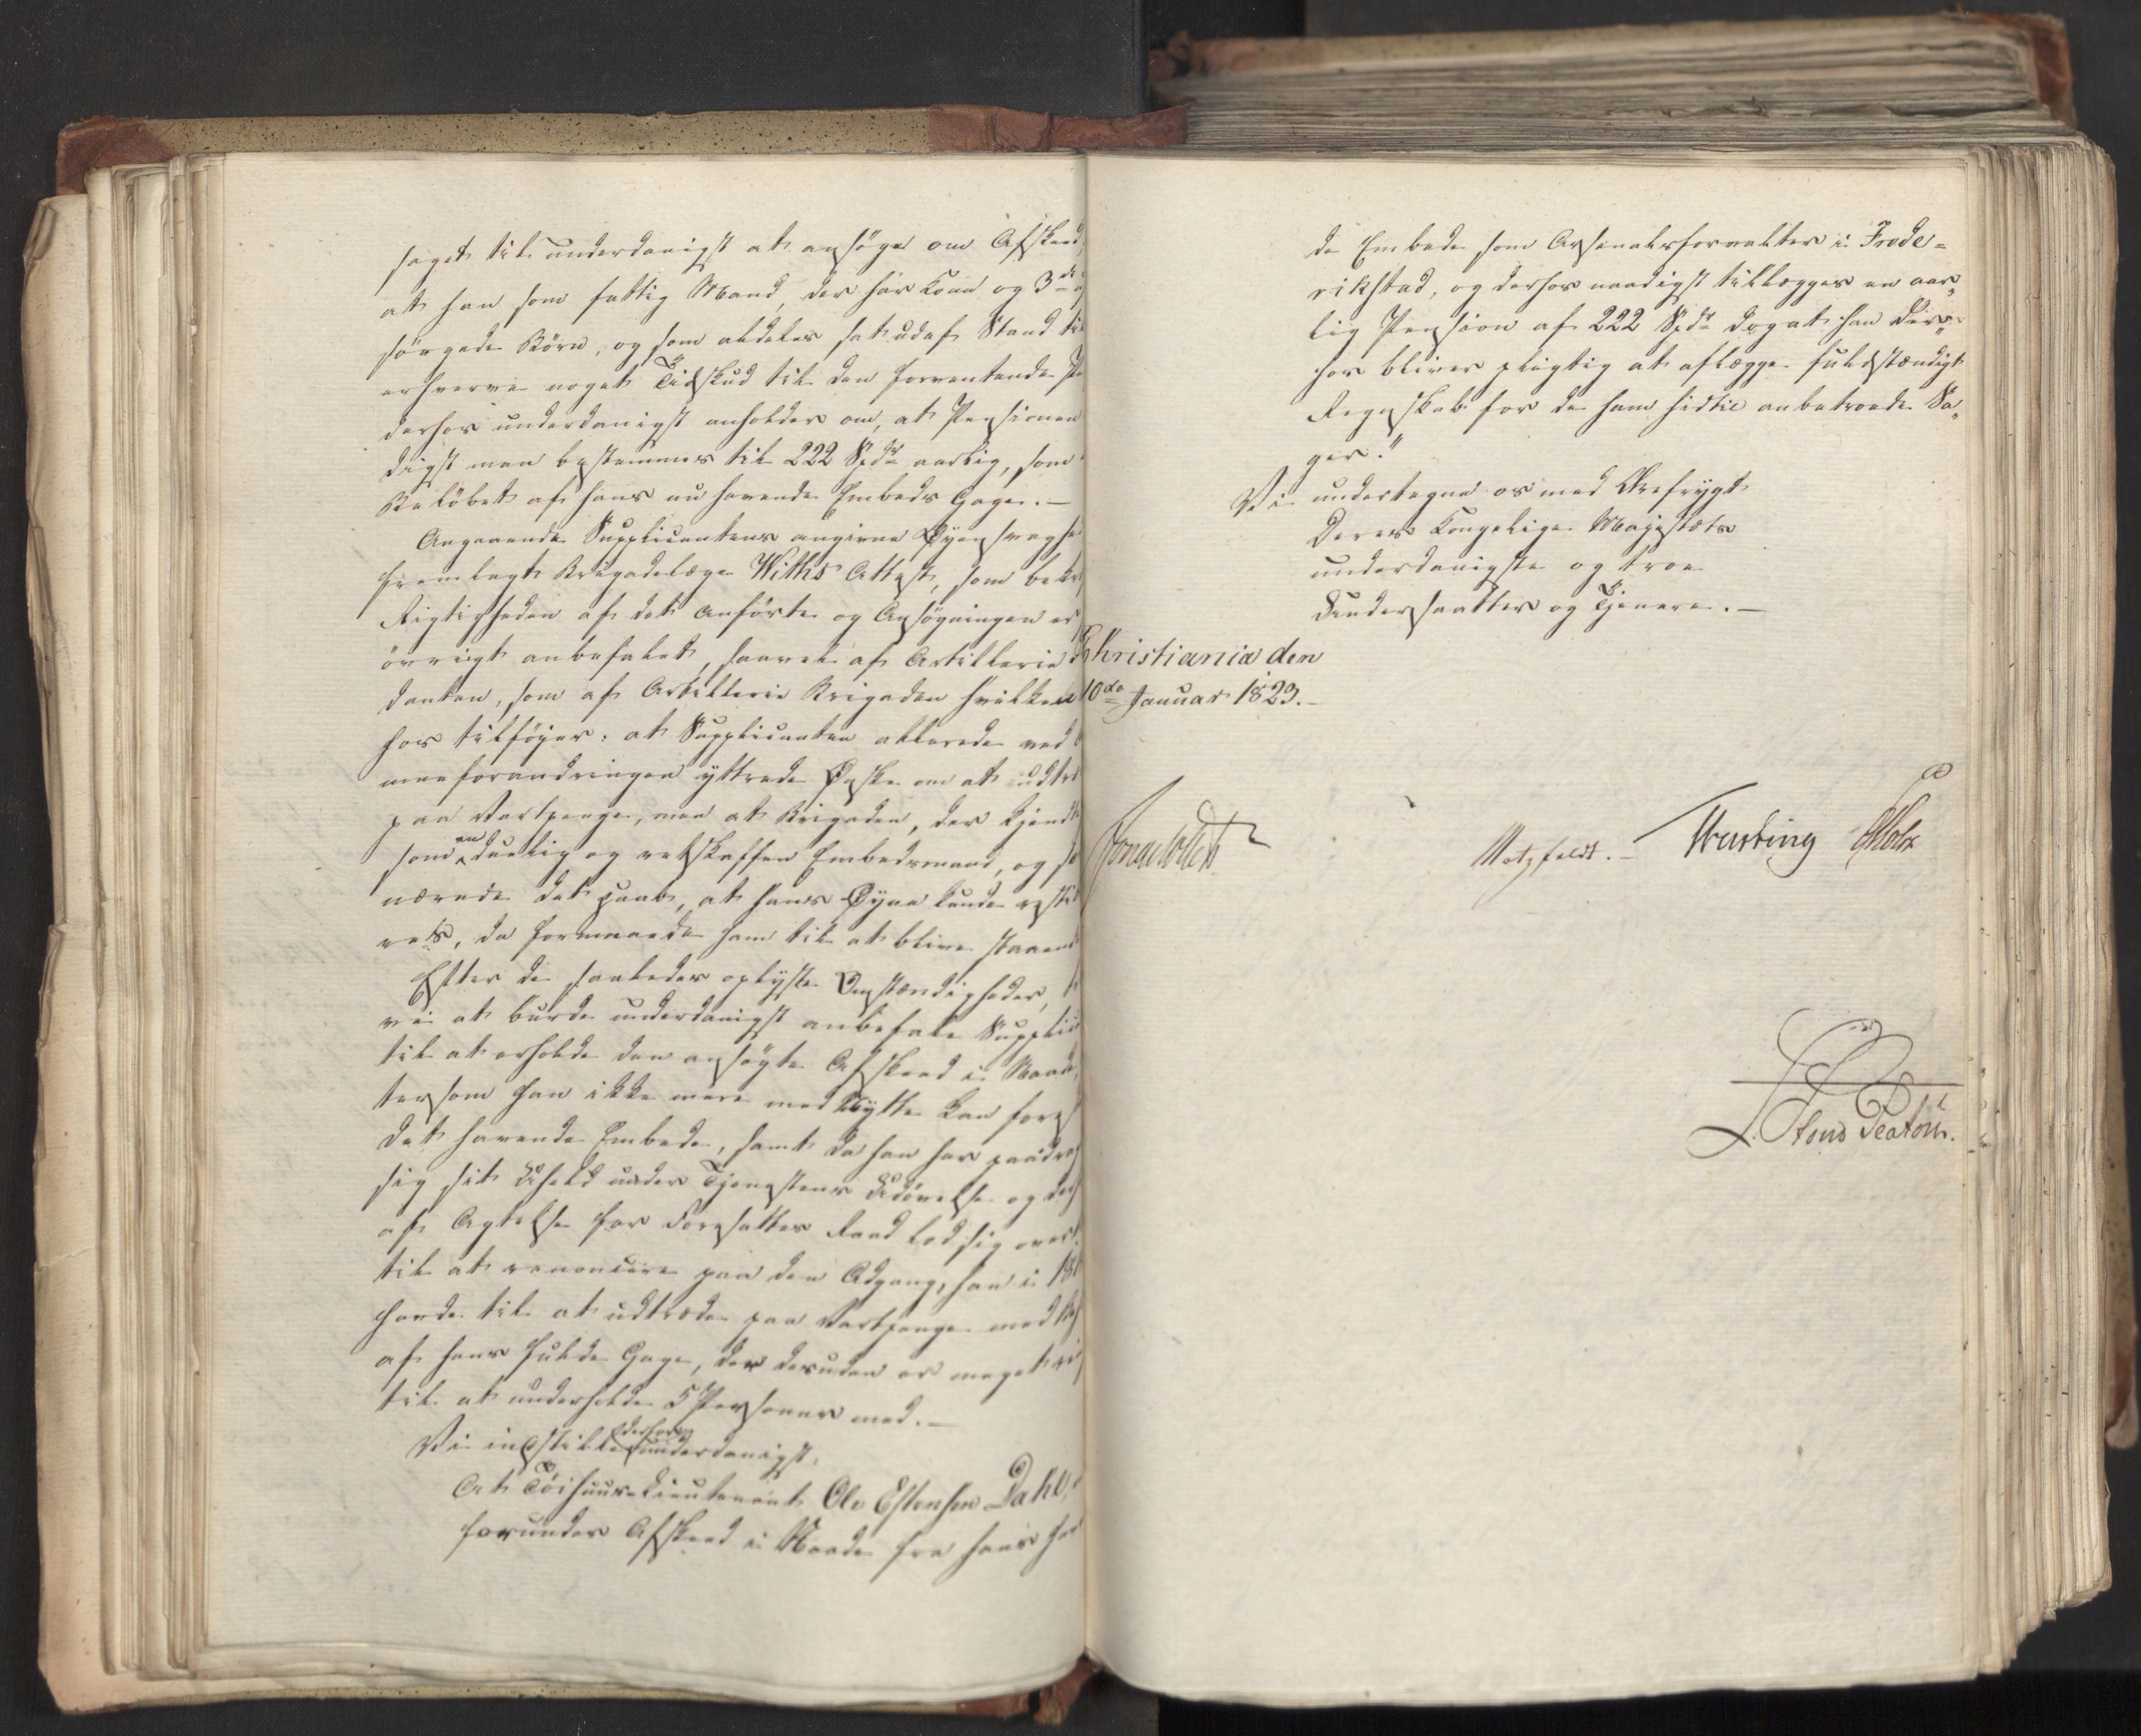 saget til underdanigst at ansøge om Afskeed,
at han som fattig Mand, der har Kone og 3de
sørgede Børn, og som aldeles sat udaf Stand til
erhverve noget Tilskud til den forventende
derhos underdanigst anholder om, at Pensionen
digst maa bestemmes til 222 Spdr aarlig, som
Beløbet af hans nu havende Embeds Gage.—
Angaaende Supplicantens angivne Øyensvaghe
fremlagt Brigadelæge Withs Attest, som
Rigtigheden af det anførte og Ansøgningen er
øvrigt anbefalet, saavel af Artillerie
danten, som af Artillerie Brigaden hvilken
hos tilføyer: at Supplicanten allerede ved
meeforandringen yttrede Ønske om at udtr
paa Vartpenge, men at Brigaden, der kjendte
som en duelig og retskaffen Embedsmand, og
nærede det Haab, at hans Øyne kunde
res, da formaaede ham til at blive staaende
Efter de saaledes oplyste Omstændigheder,
vi at burde underdanigst anbefale Supplic
til at erholde den ansøgte Afskeed i Naade,
tersom han ikke mere med Nytte kan fore
det havende Embede, samt da han har paadra
sig sit Uheld under Tjenestens Udøvelse og
af Agtelse for Foresattes Raad lod sig over
til at renoncere paa den Adgang, han i 18
havde til at udtræde paa Vartpenge med
af hans fulde Gage, der desuden er meget
til at underholde 5 Personer med.—
Vi indstille derfor underdanigst:
At Tøihuus-Lieutenant Ole Estensen Dahl,
forundes Afskeed i Naade fra hans hav
de Embede som Arsenalsforvalter i Frede=
rikstad, og derhos naadigst tillægges en aar„
lig Pension af 222 Spdr dog at han der„
hos bliver pligtig at aflægge fuldstændigt
Regnskab for de ham hidtil anbetroede Sa„
ger."
Vi undertegne os med Ærefrygt
Deres Kongelige Majestæts
underdanigste og troe
Undersaatter og Tjenere.—
Christiania den
10de Januar 1823.—
Motzfeldt.— Holst